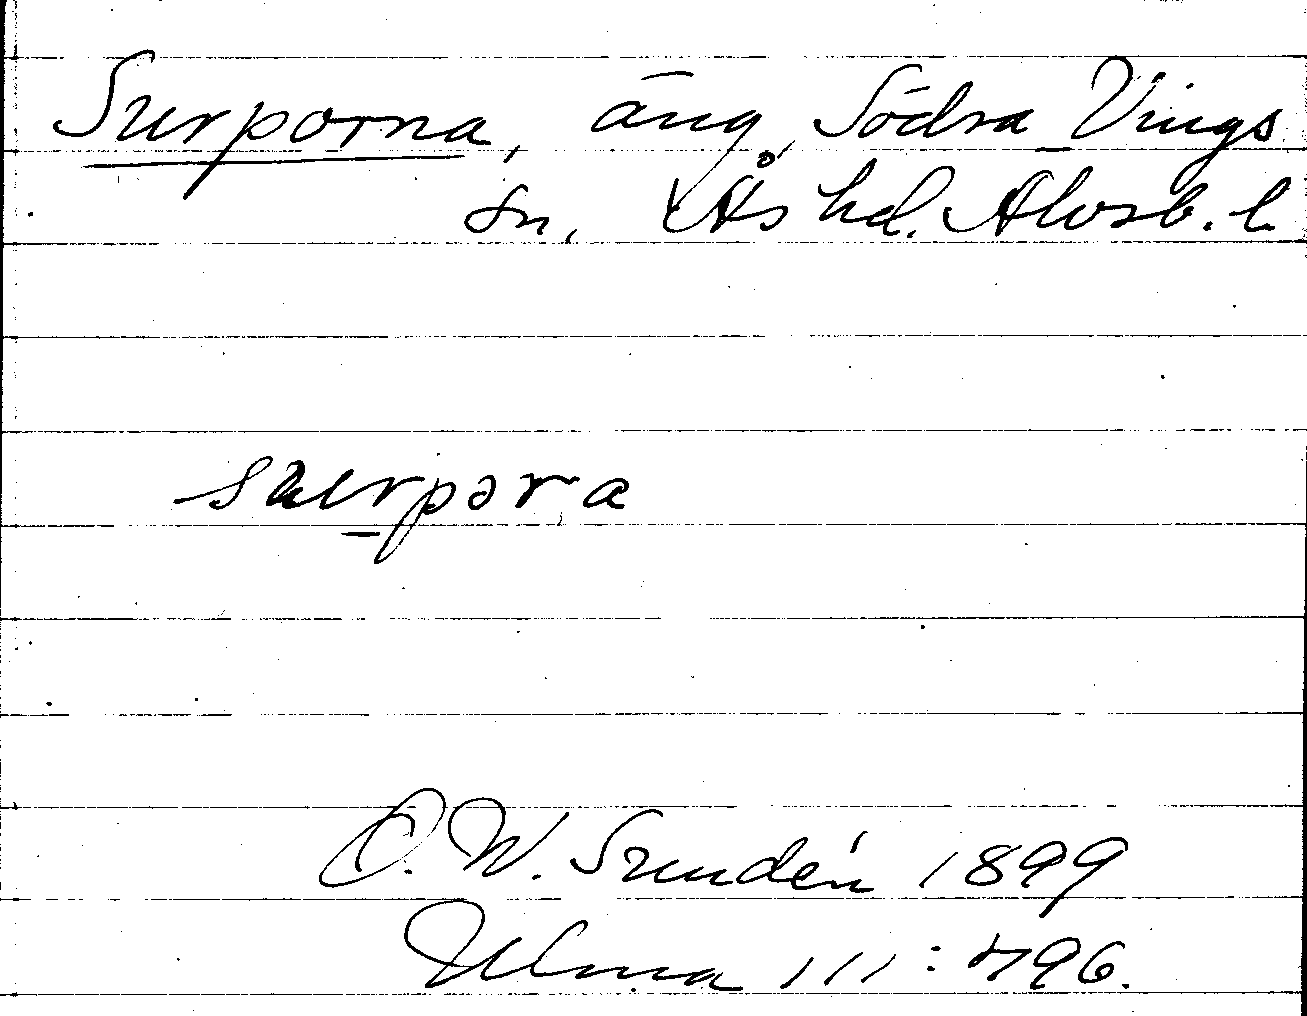 Surporna, äng, Södra Vings
sn, Ås hd. Älvsb. l.
surpora
O. W. Sundén 1899
Ulma 111:796.